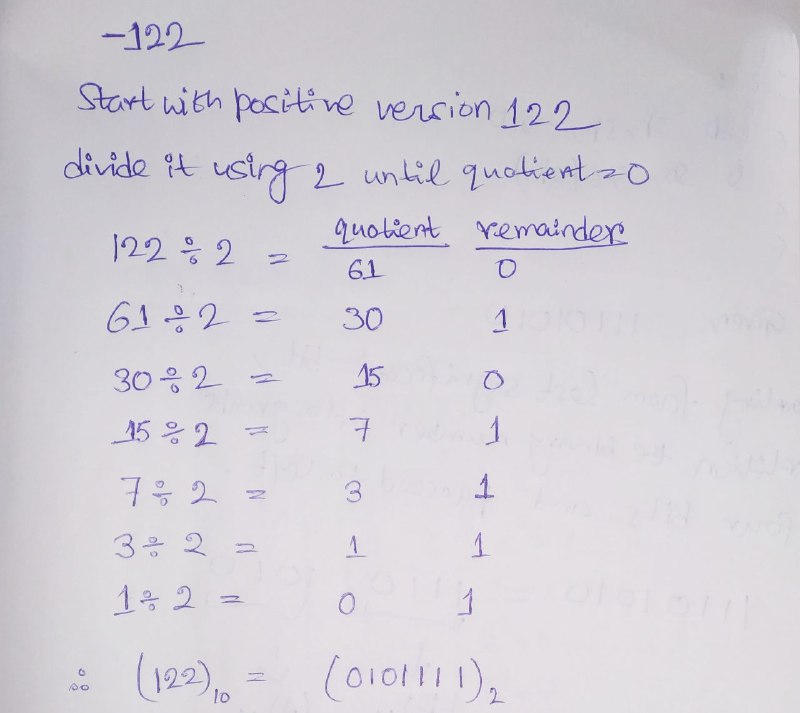 -122
Start with positive version 122
divide it using 2 until quotient = 0
quotient remainder
122 ÷ 2 = 61 0
61 ÷ 2 = 30 1
30 ÷ 2 = 15 0
15 ÷ 2 = 7 1
7 ÷ 2 = 3 1
3 ÷ 2 = 1 1
1 ÷ 2 = 0 1
∴ (122)₁₀ = (0101111)₂